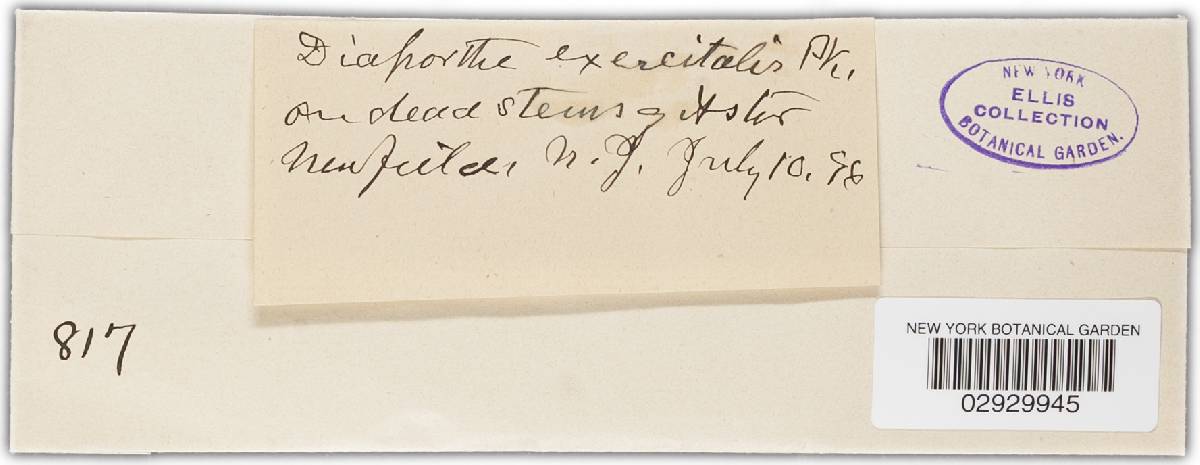 Diaporthe exercitalis Pk.
on dead stems of Aster
Newfield, N.J. July 10. 98
NEW YORK
ELLIS
COLLECTION
BOTANICAL GARDEN.
817
NEW YORK BOTANICAL GARDEN
02929945